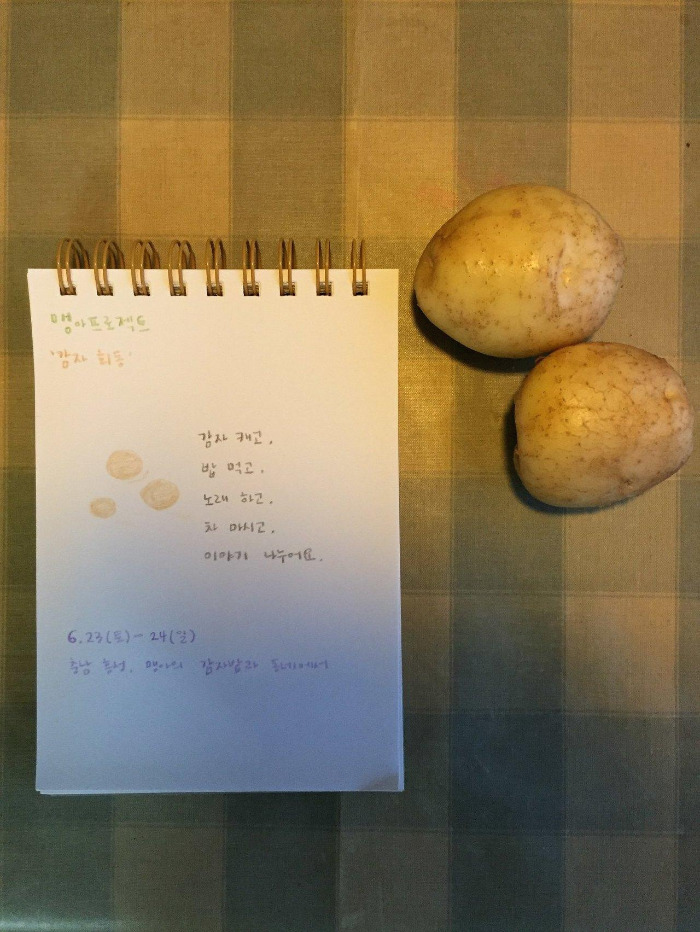 맹아프로젝트
'감자 회동'
감자 캐고,
밥 먹고,
노래 하고,
차 마시고,
이야기 나누어요.
6.23(토) - 24(일)
충남 홍성, 맹아의 감자밭과 동네에서